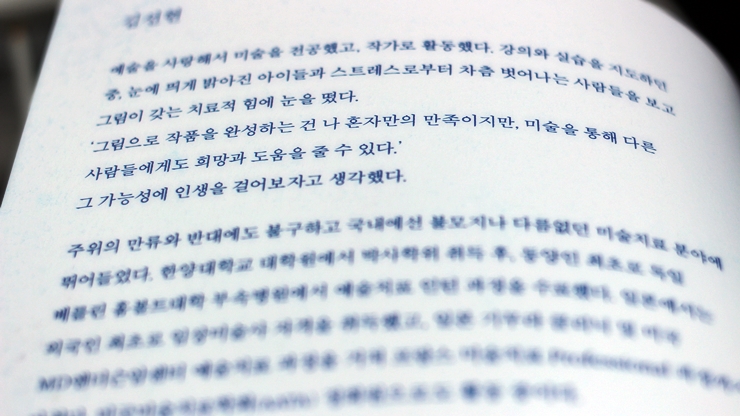 김선현
예술을 사랑해서 미술을 전공했고, 작가로 활동했다. 강의와 실습을 지도하던
중, 눈에 띄게 밝아진 아이들과 스트레스로부터 차츰 벗어나는 사람들을 보고
그림이 갖는 치료적 힘에 눈을 떴다.
'그림으로 작품을 완성하는 건 나 혼자만의 만족이지만, 미술을 통해 다른
사람들에게도 희망과 도움을 줄 수 있다.'
그 가능성에 인생을 걸어보자고 생각했다.
주위의 만류와 반대에도 불구하고 국내에선 불모지나 다름없던 미술치료 분야에
뛰어들었다. 한양대학교 대학원에서 박사학위 취득 후, 동양인 최초로 독일
베를린 훔볼트대학 부속병원에서 예술치료 인턴 과정을 수료했다. 일본에서는
외국인 최초로 임상미술사 자격을 취득했고, 일본
MD앤더슨암센터 예술치료 과정을 거쳐 프랑스 미술치료 Professional 과정